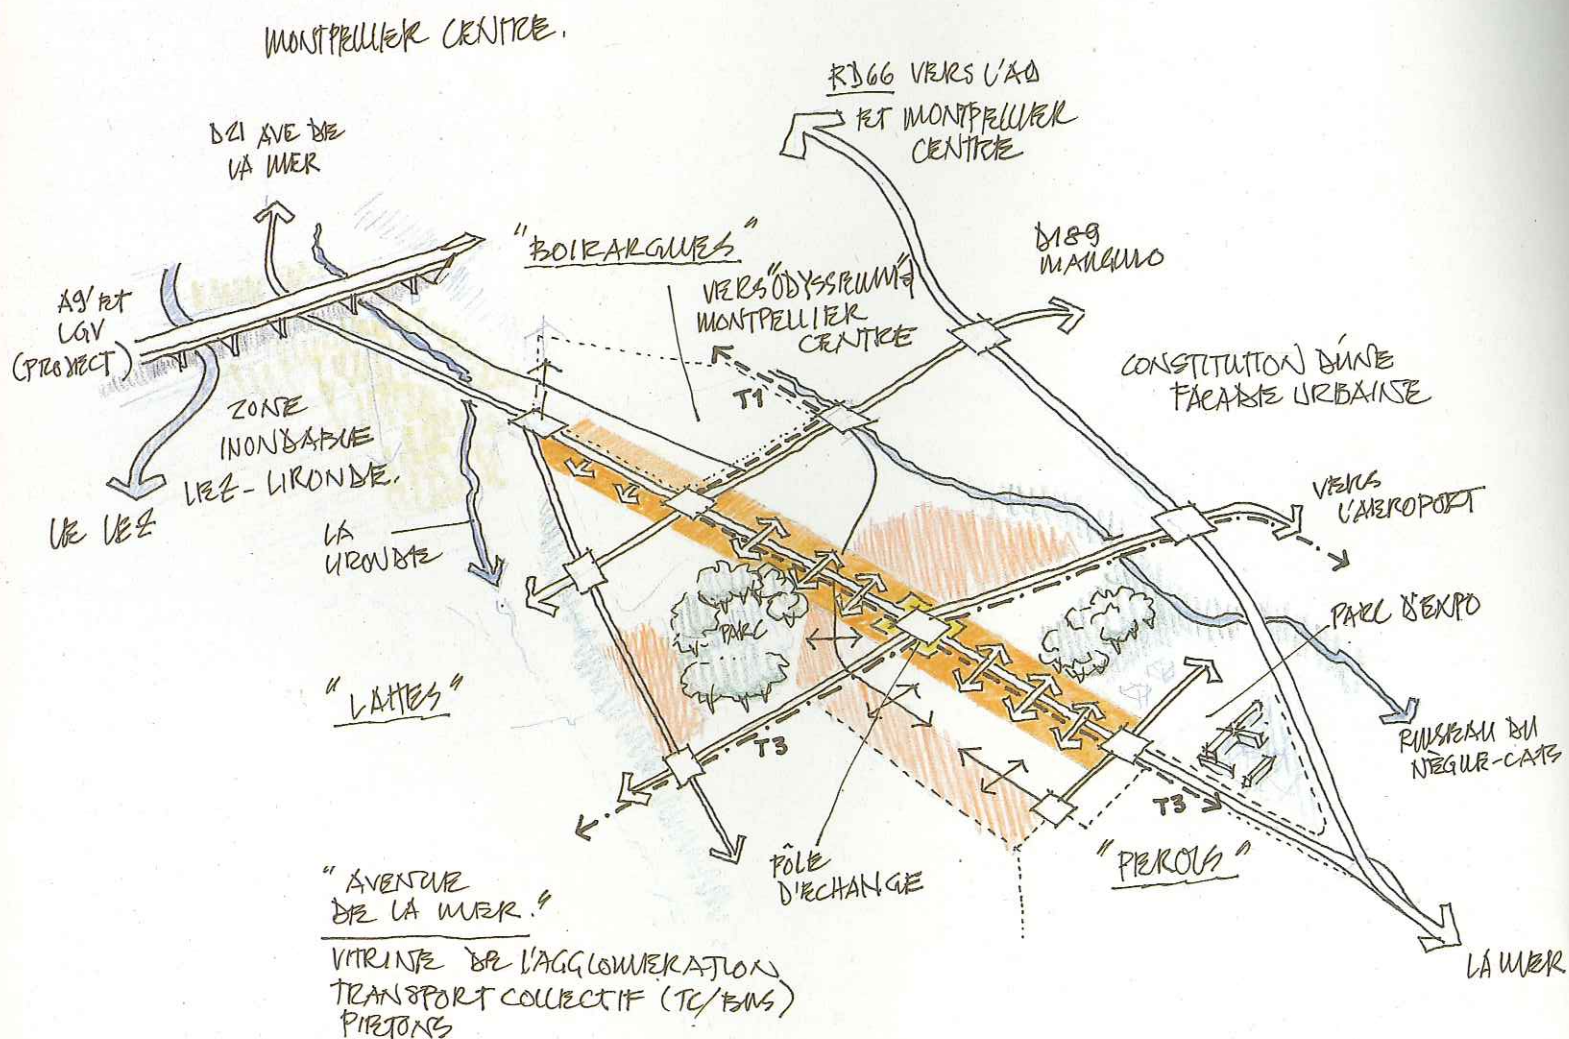 MONTPELLIER CENTRE.
RD66 VERS L'A9
ET MONTPELLIER
CENTRE
D21 AVE DE
LA MER
"BOIRARGUES"
D189
MAUGUIO
VERS "ODYSSEUM" &
MONTPELLIER
CENTRE
A9' ET
LGV
(PROJECT)
T1
CONSTITUTION D'UNE
FACADE URBAINE
ZONE
INONDABLE
LEZ-LIRONDE.
LE LEZ
LA
LIRONDE
VERS
L'AEROPORT
PARC
PARC D'EXPO
"LATTES"
T3
RUISEAU DU
NÈGUE-CATS
T3
"PEROLS"
PÔLE
D'ECHANGE
LA MER
"AVENUE
DE LA MER."
VITRINE DE L'AGGLOMERATION
TRANSPORT COLLECTIF (TC/BUS)
PIETONS